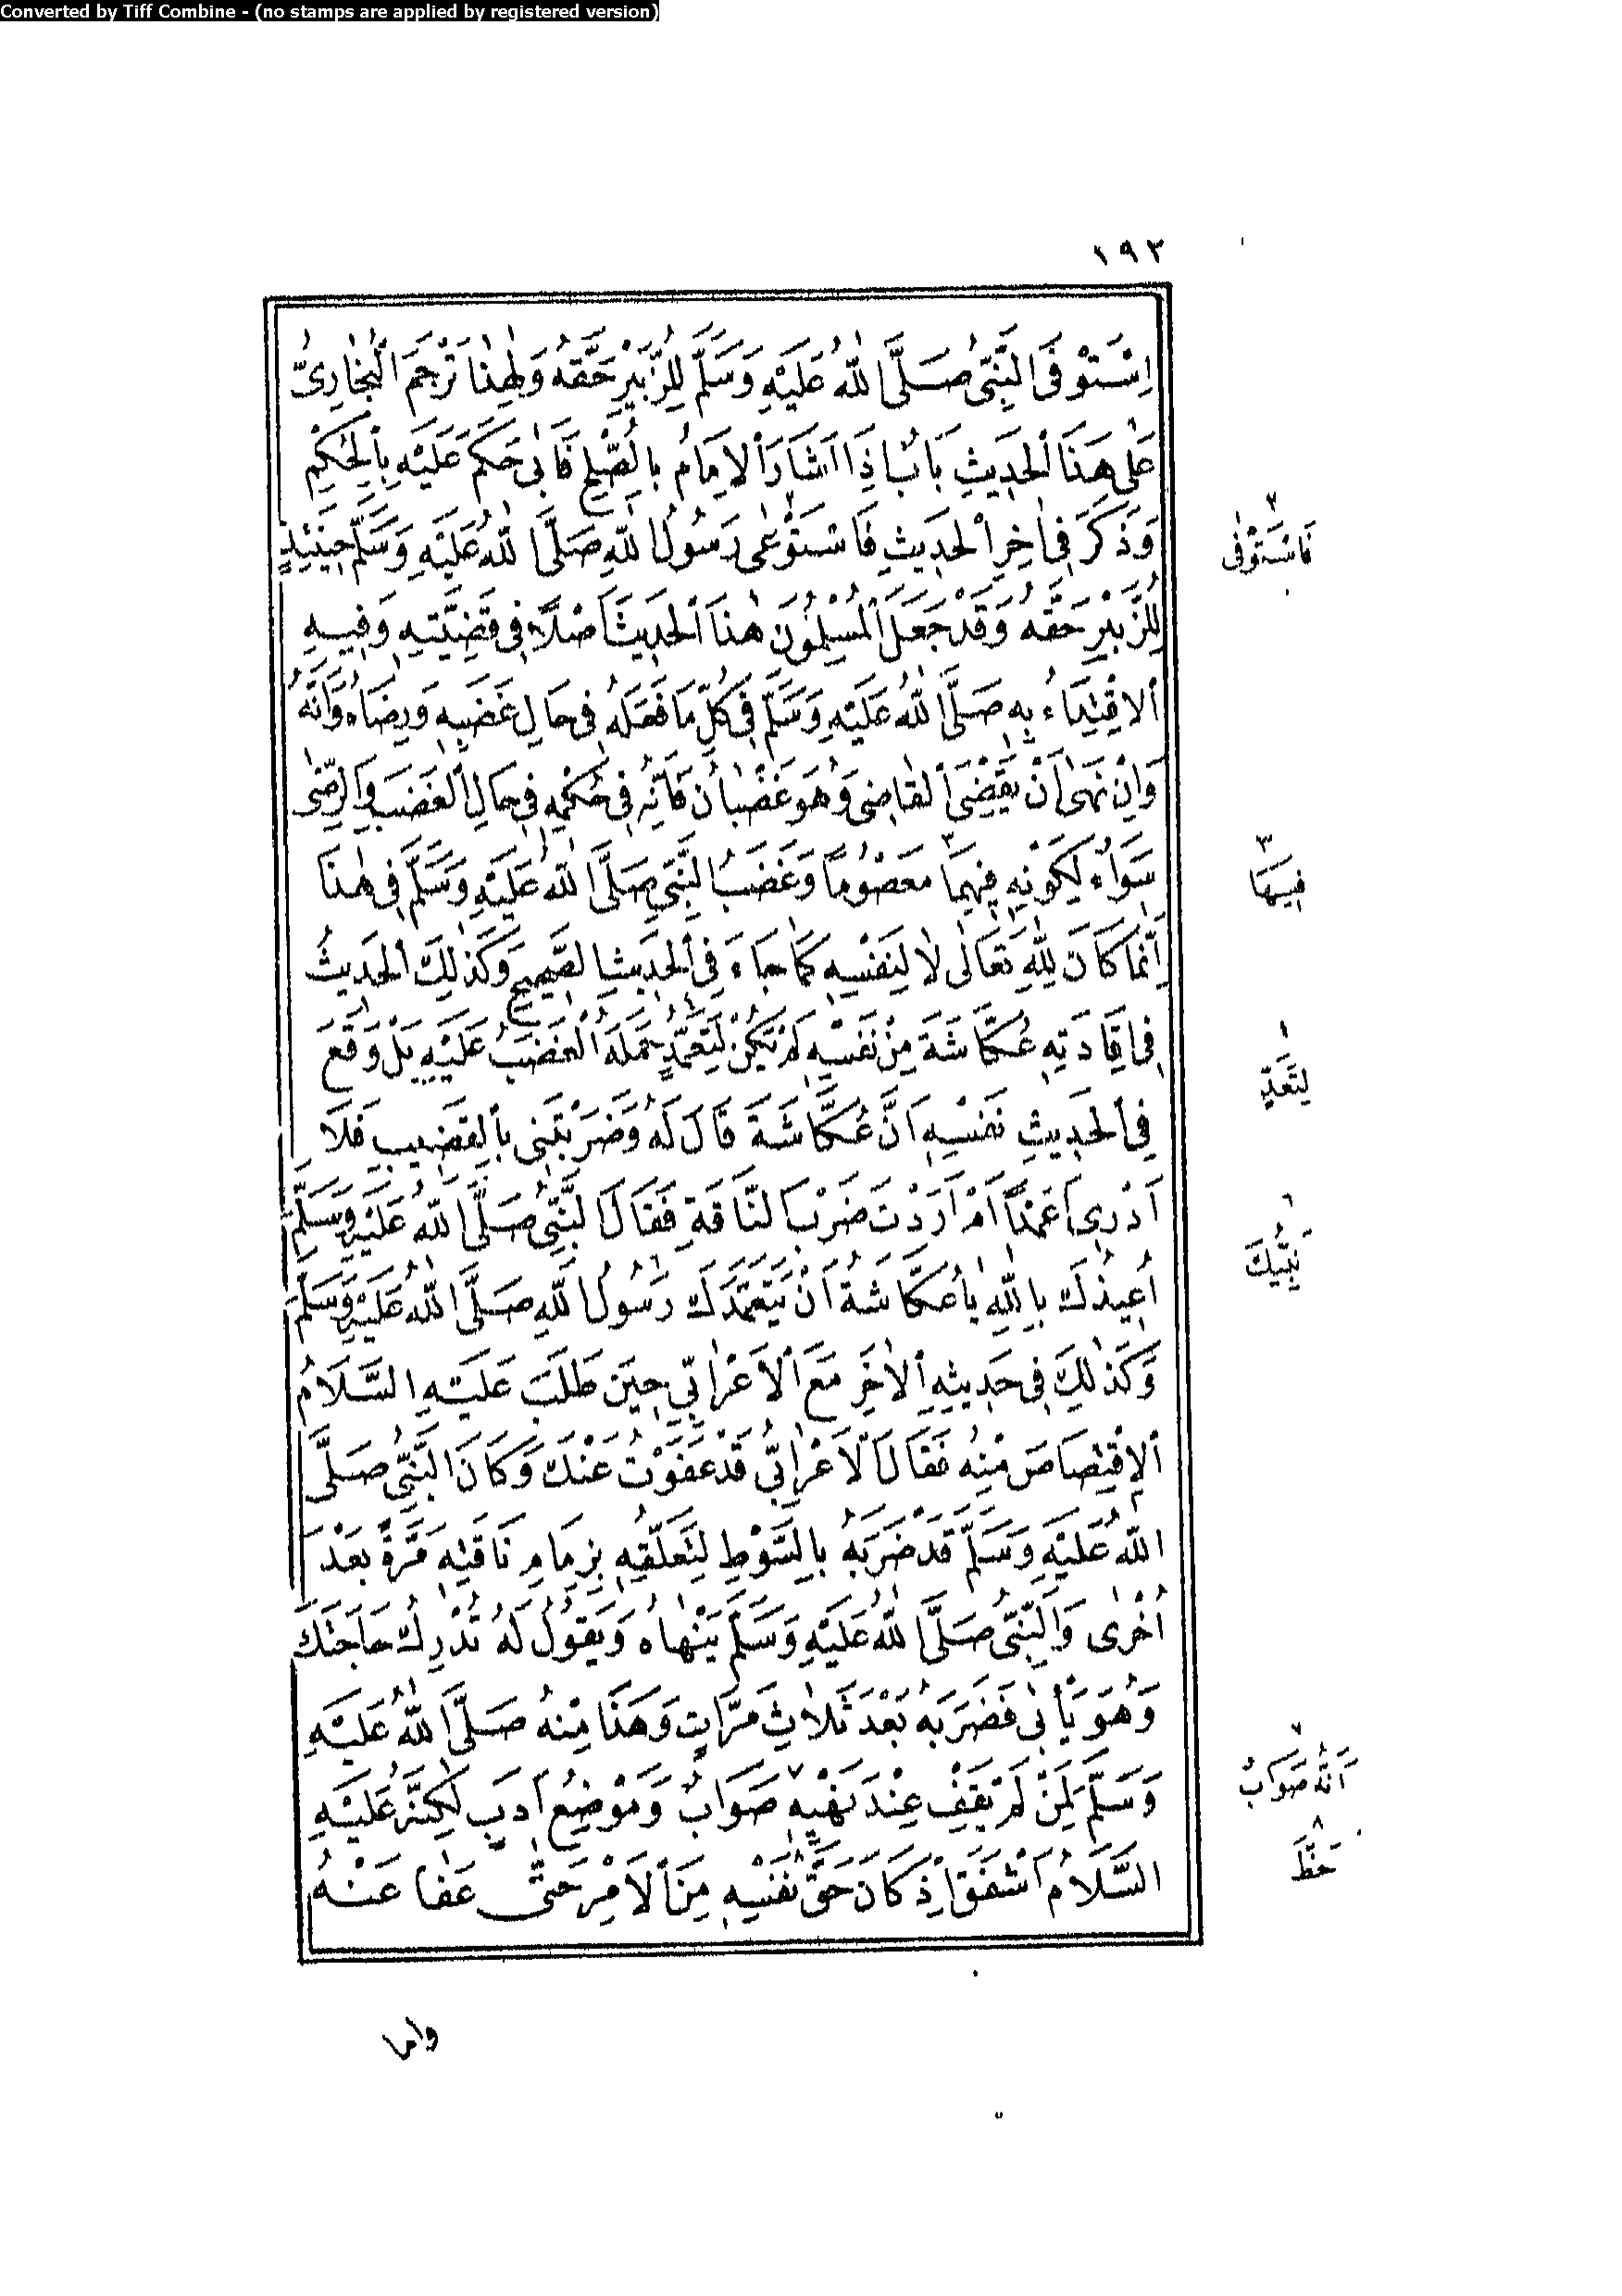 Converted by Tiff Combine - (no stamps are applied by registered version)
١٩٢
اِسْتَوْفَى النَّبِىُّ صَلَّى اللهُ عَلَيْهِ وَسَلَّمَ لِلزُّبَيْرِ حَقَّهُ وَلِهٰذَا تَرْجَمَ الْبُخَارِىُّ
عَلٰى هٰذَا الْحَدِيثِ بَابُ اِذَا اَشَارَ الْاِمَامُ بِالصُّلْحِ فَاَبٰى حَكَمَ عَلَيْهِ بِالْحُكْمِ
وَذَكَرَ فِى اٰخِرِ الْحَدِيثِ فَاسْتَوْعٰى رَسُولُ اللهِ صَلَّى اللهُ عَلَيْهِ وَسَلَّمَ حِينَئِذٍ
لِلزُّبَيْرِ حَقَّهُ وَقَدْ جَعَلَ الْمُسْلِمُونَ هٰذَا الْحَدِيثَ اَصْلًا فِى قَضِيَّتِهِ وَفِيهِ
الْاِقْتِدَاءُ بِهِ صَلَّى اللهُ عَلَيْهِ وَسَلَّمَ فِى كُلِّ مَا فَعَلَهُ فِى حَالِ غَضَبِهِ وَرِضَاهُ وَاَنَّهُ
وَاِنْ نَهٰى اَنْ يَقْضِىَ الْقَاضِى وَهُوَ غَضْبَانُ فَاِنَّهُ فِى حُكْمِهِ فِى حَالِ الْغَضَبِ وَالرِّضٰى
سَوَاءٌ لِكَوْنِهِ فِيهِمَا مَعْصُومًا وَغَضَبُ النَّبِىِّ صَلَّى اللهُ عَلَيْهِ وَسَلَّمَ فِى هٰذَا
اِنَّمَا كَانَ لِلّٰهِ تَعَالٰى لَا لِنَفْسِهِ كَمَا جَاءَ فِى الْحَدِيثِ الصَّحِيحِ وَكَذٰلِكَ الْحَدِيثُ
فِى اِقَادَتِهِ عُكَّاشَةَ مِنْ نَفْسِهِ لَمْ تَكُنْ لِتَعَمُّدٍ حَمَلَهُ الْغَضَبُ عَلَيْهِ بَلْ وَقَعَ
فِى الْحَدِيثِ نَفْسِهِ اَنَّ عُكَّاشَةَ قَالَ لَهُ وَضَرَبْتَنِى بِالْقَضِيبِ فَلَا
اَدْرِى اَعَمْدًا اَمْ اَرَدْتَ ضَرْبَ النَّاقَةِ فَقَالَ النَّبِىُّ صَلَّى اللهُ عَلَيْهِ وَسَلَّمَ
اُعِيذُكَ بِاللّٰهِ يَا عُكَّاشَةُ اَنْ يَتَعَمَّدَكَ رَسُولُ اللهِ صَلَّى اللهُ عَلَيْهِ وَسَلَّمَ
وَكَذٰلِكَ فِى حَدِيثِهِ الْاٰخَرِ مَعَ الْاَعْرَابِىِّ حِينَ طَلَبَ عَلَيْهِ السَّلَامُ
الْاِقْتِصَاصَ مِنْهُ فَقَالَ الْاَعْرَابِىُّ قَدْ عَفَوْتُ عَنْكَ وَكَانَ النَّبِىُّ صَلَّى
اللهُ عَلَيْهِ وَسَلَّمَ قَدْ ضَرَبَهُ بِالسَّوْطِ لِتَعَلُّقِهِ بِزِمَامِ نَاقَتِهِ مَرَّةً بَعْدَ
اُخْرٰى وَالنَّبِىُّ صَلَّى اللهُ عَلَيْهِ وَسَلَّمَ يَنْهَاهُ وَيَقُولُ لَهُ تُدْرِكُ حَاجَتَكَ
وَهُوَ يَأْبٰى فَضَرَبَهُ بَعْدَ ثَلَاثِ مَرَّاتٍ وَهٰذَا مِنْهُ صَلَّى اللهُ عَلَيْهِ
وَسَلَّمَ لِمَنْ لَمْ يَقِفْ عِنْدَ نَهْيِهِ ٧ صَوَابٌ وَمَوْضِعُ اَدَبٍ لٰكِنَّهُ عَلَيْهِ
السَّلَامُ اَشْفَقَ اِذْ كَانَ حَقَّ نَفْسِهِ مِنَ الْاَمْرِ حَتّٰى عَفَا عَنْهُ
٢
فَاسْتَوْفٰى
٣
فِيهَا
لِتَعَدٍّ
٦
نَبِيُّكَ
٧
اَنَّهُ صَوَابٌ
٨
حَظَّ
واما